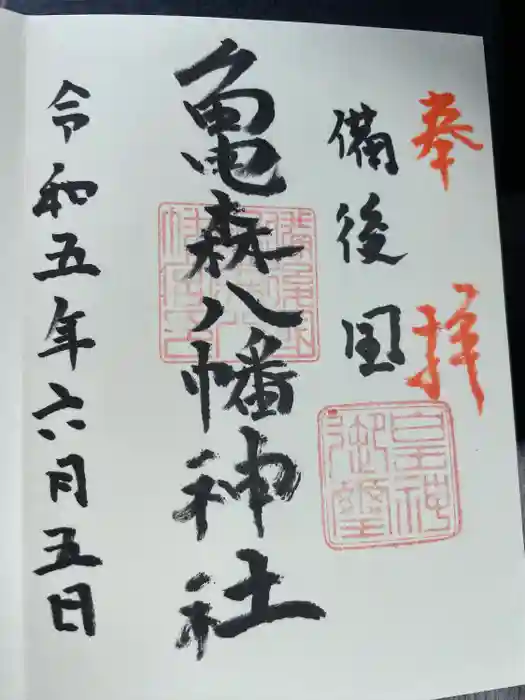 奉拝
備後国
亀森八幡神社
令和五年六月五日